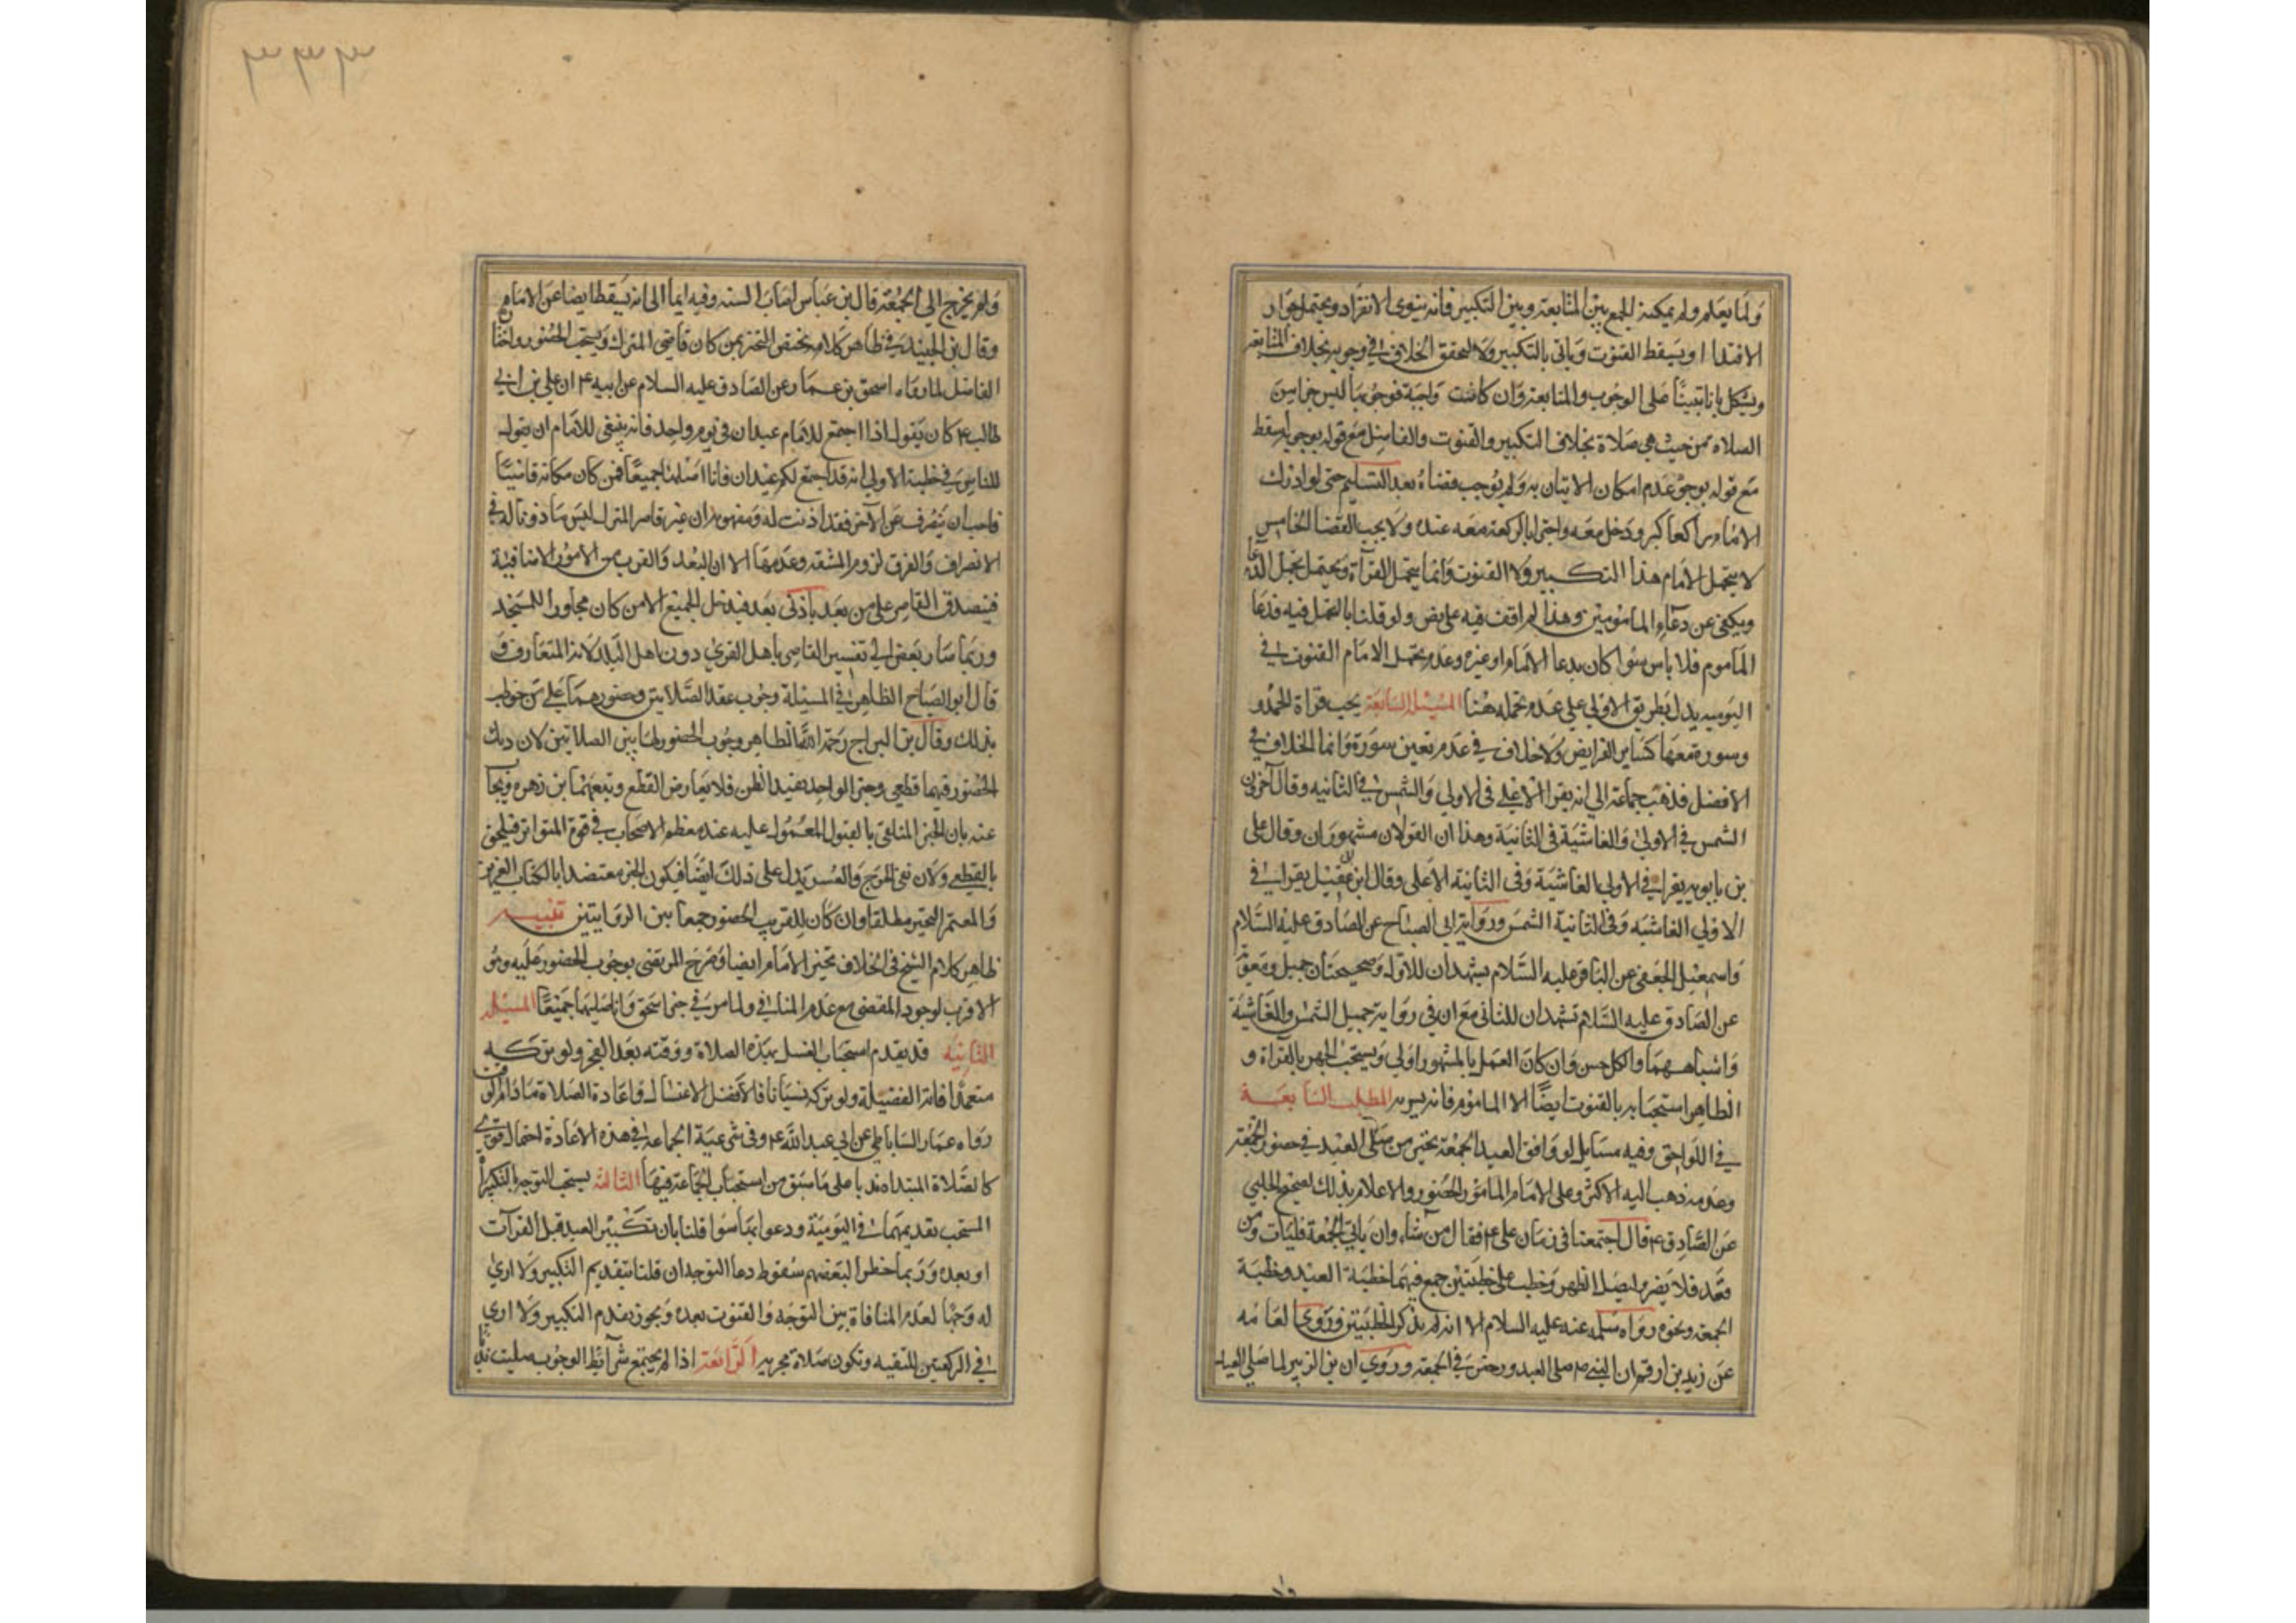 ولما يعلم ولم يمكنه الجمع بين المتابعة وبين التكبير فانه ينوى الانفراد ويحتمل جواز
الاقتدا او يسقط القنوت وياتى بالتكبير ولا لتحقق الخلاف فى وجوبه بخلاف المتابعة
ويشكل بانا تبينا على الوجوب والمتابعة وان كانت واجبة فوجوبها ليس جزا من
الصلاه من حيث هى صلاة بخلاف التكبير والقنوت والفاضل مع قوله بوجوبه اسقط
مع قوله بوجوبه عدم امكان الاتيان به ولم يوجب قضاه بعد التسليم حتى لو ادرك
الامام راكعا كبر ودخل معه واجتزا بالركعة معه عنده ولا يجب القضا الخامس
لا يتحمل الامام هذا التكبير ولا القنوت وانما يتحمل القراة ويحتمل تحمل الدعا
ويكفى عن دعاء المامومين وهذا لم اقف فيه على نص ولو قلنا بالتحمل فيه فدعا
الماموم فلا باس سوا كان بدعا الامام او غيره وعدم تحمل الامام القنوت فى
اليوميه يدل بطريق الاولى على عدم تحمله هنا المسئلة السابعة يجب قراة الحمد و
وسورة معها كساير الفرايض ولا خلاف فى عدم تعين سورة وانما الخلاف فى
الافضل فذهب جماعة الى انه يقرا الاعلى فى الاولى والشمس فى الثانيه وقال آخرون
الشمس فى الاولى والغاشية فى الثانية وهذا ان القولان مشهوران وقال على
بن بابويه يقرا فى الاولى بالغاشية وفى الثانية الاعلى وقال ابن عقيل يقرا فى
الاولى الغاشيه وفى الثانية الشمس ورواية ابى الصباح عن الصادق عليه السلام
واسمعيل الجعفى عن الباقر عليه السلام يشهدان للاول وصحيحتان جميل ومعوية
عن الصادق عليه السلام تشهدان للثانى مع ان فى رواية جميل الشمس والغاشية
واشباههما والكل حسن وان كان العمل بالمشهور اولى ويستحب الجهر بالقراة و
الظاهر استحبابه بالقنوت ايضا الا الماموم فانه يسر به المطلب السابعة
فى اللواحق وفيه مسايل لو وافق العيد الجمعة تخير من صلى العيد فى حضور الجمعة
وعدمه ذهب اليه الاكثر وعلى الامام المامور الحضور والاعلام بذلك لصحيح الحلبى
عن الصادق ع قال اجتمعنا فى زمان على ع فقال من شاء وان ياتى الجمعة فليات ومن
قعد فلا يضره ليصل الظهر وخطب على خطبتين جمع فيهما خطبة العيد وخطبة
الجمعة ونحوه رواه سلمه عنه عليه السلام الا انه لم يذكر الخطبتين وروى العامه
عن زيد بن ارقم ان النبى ص صلى العيد ورخص فى الجمعة وروى ان بن الزبير لما صلى العيد
ولم يخرج الى الجمعة قال بن عباس اصاب السنه وفيه ايما الى انه يسقط ايضا عن الامام
وقال بن الجنيد فى ظاهر كلامه يختص التخير بمن كان قاصى المنزل ويستحب الحضور واختا
الفاضل لما رواه اسحق بن عمار عن الصادق عليه السلام عن ابيه ع ان على بن ابى
طالب ع كان يقول اذا اجتمع للامام عيدان فى يوم واحد فانه ينبغى للامام ان يقول
للناس فى خطبة الاولى انه قد اجتمع لكم عيدان فانا اصليهما جميعا فمن كان مكانه قاصيا
فاحب ان ينصرف عن الآخر فقد اذنت له ومفهومه ان غير قاصر المنزل ليس ماذونا له فى
الانصراف والفرق لزوم المشقة وعدمها الا ان البعد والقرب من الامور الاضافية
فيصدق القاصر على من بعد بادنى بعد فيدخل الجميع الا من كان مجاورا للمسجد
وربما صار بعض الى تفسير القاصى باهل القرى دون اهل البلد لانه المتعارف و
قال ابو الصلاح الظاهر فى المسيلة وجوب عقد الصلايتن وحضورهما على من خوطب
بذلك وقال بن البراج رحمه الله الظاهر وجوب الحضور لهاتين الصلاتين لان دليل
الحضور فيهما قطعى وخبر الواحد يفيد الظن فلا يعارض القطع وتبعهما بن زهره ويجاب
عنه بان الخبر المتلقى بالقبول المعمول عليه عند معظم الاصحاب فى قوة المتواتر فيلحق
بالقطعى ولان نفى الحرج والعسر يدل على ذلك ايضا فيكون الخبر معتضدا بالكتاب العزيز
والمعتمر التخير مطلقا وان كان للقريب الحضور جمعا بين الروايتين تنبيه
ظاهر كلام الشيخ فى الخلاف تخير الامام ايضا وصرح المرتضى بوجوب الحضور عليه وهو
الاقرب لوجود المقتضى مع عدم المنافى ولما مر فى خبر اسحق وانا اصليهما جميعا المسيله
الثانيه قد يقدم استحباب الغسل بهذه الصلاة ووقته بعد الفجر ولو تركه
متعمدا فاته الفضيلة ولو تركه نسيانا فالافضل الاغتسال واعادة الصلاة مادام الوقت
رواه عمار الساباطى عن ابى عبد الله ع وفى شرعية الجماعة فى هذه الاعادة احتمال قوى
كالصلاة المبتداه ندبا على ما سبق من استحباب الجماعة فيهما الثالثه يستحب التوجه بالتكبيرات
المستحب تقديمها فى اليومية ودعوا بها سوا قلنا بان تكبير العيد قبل القرآت
او بعده وربما خطر لبعضهم سقوط دعا التوجه ان قلنا بتقديم التكبير ولا ارى
له وجها لعدم المنافاة بين التوجه والقنوت بعده ويجوز تقدم التكبير ولا ارى
فى الركعتين للتقيه وتكون صلاة مجزيه الرابعة اذا لم يجتمع شرائط الوجوب صليت ندبا
٣٣٣